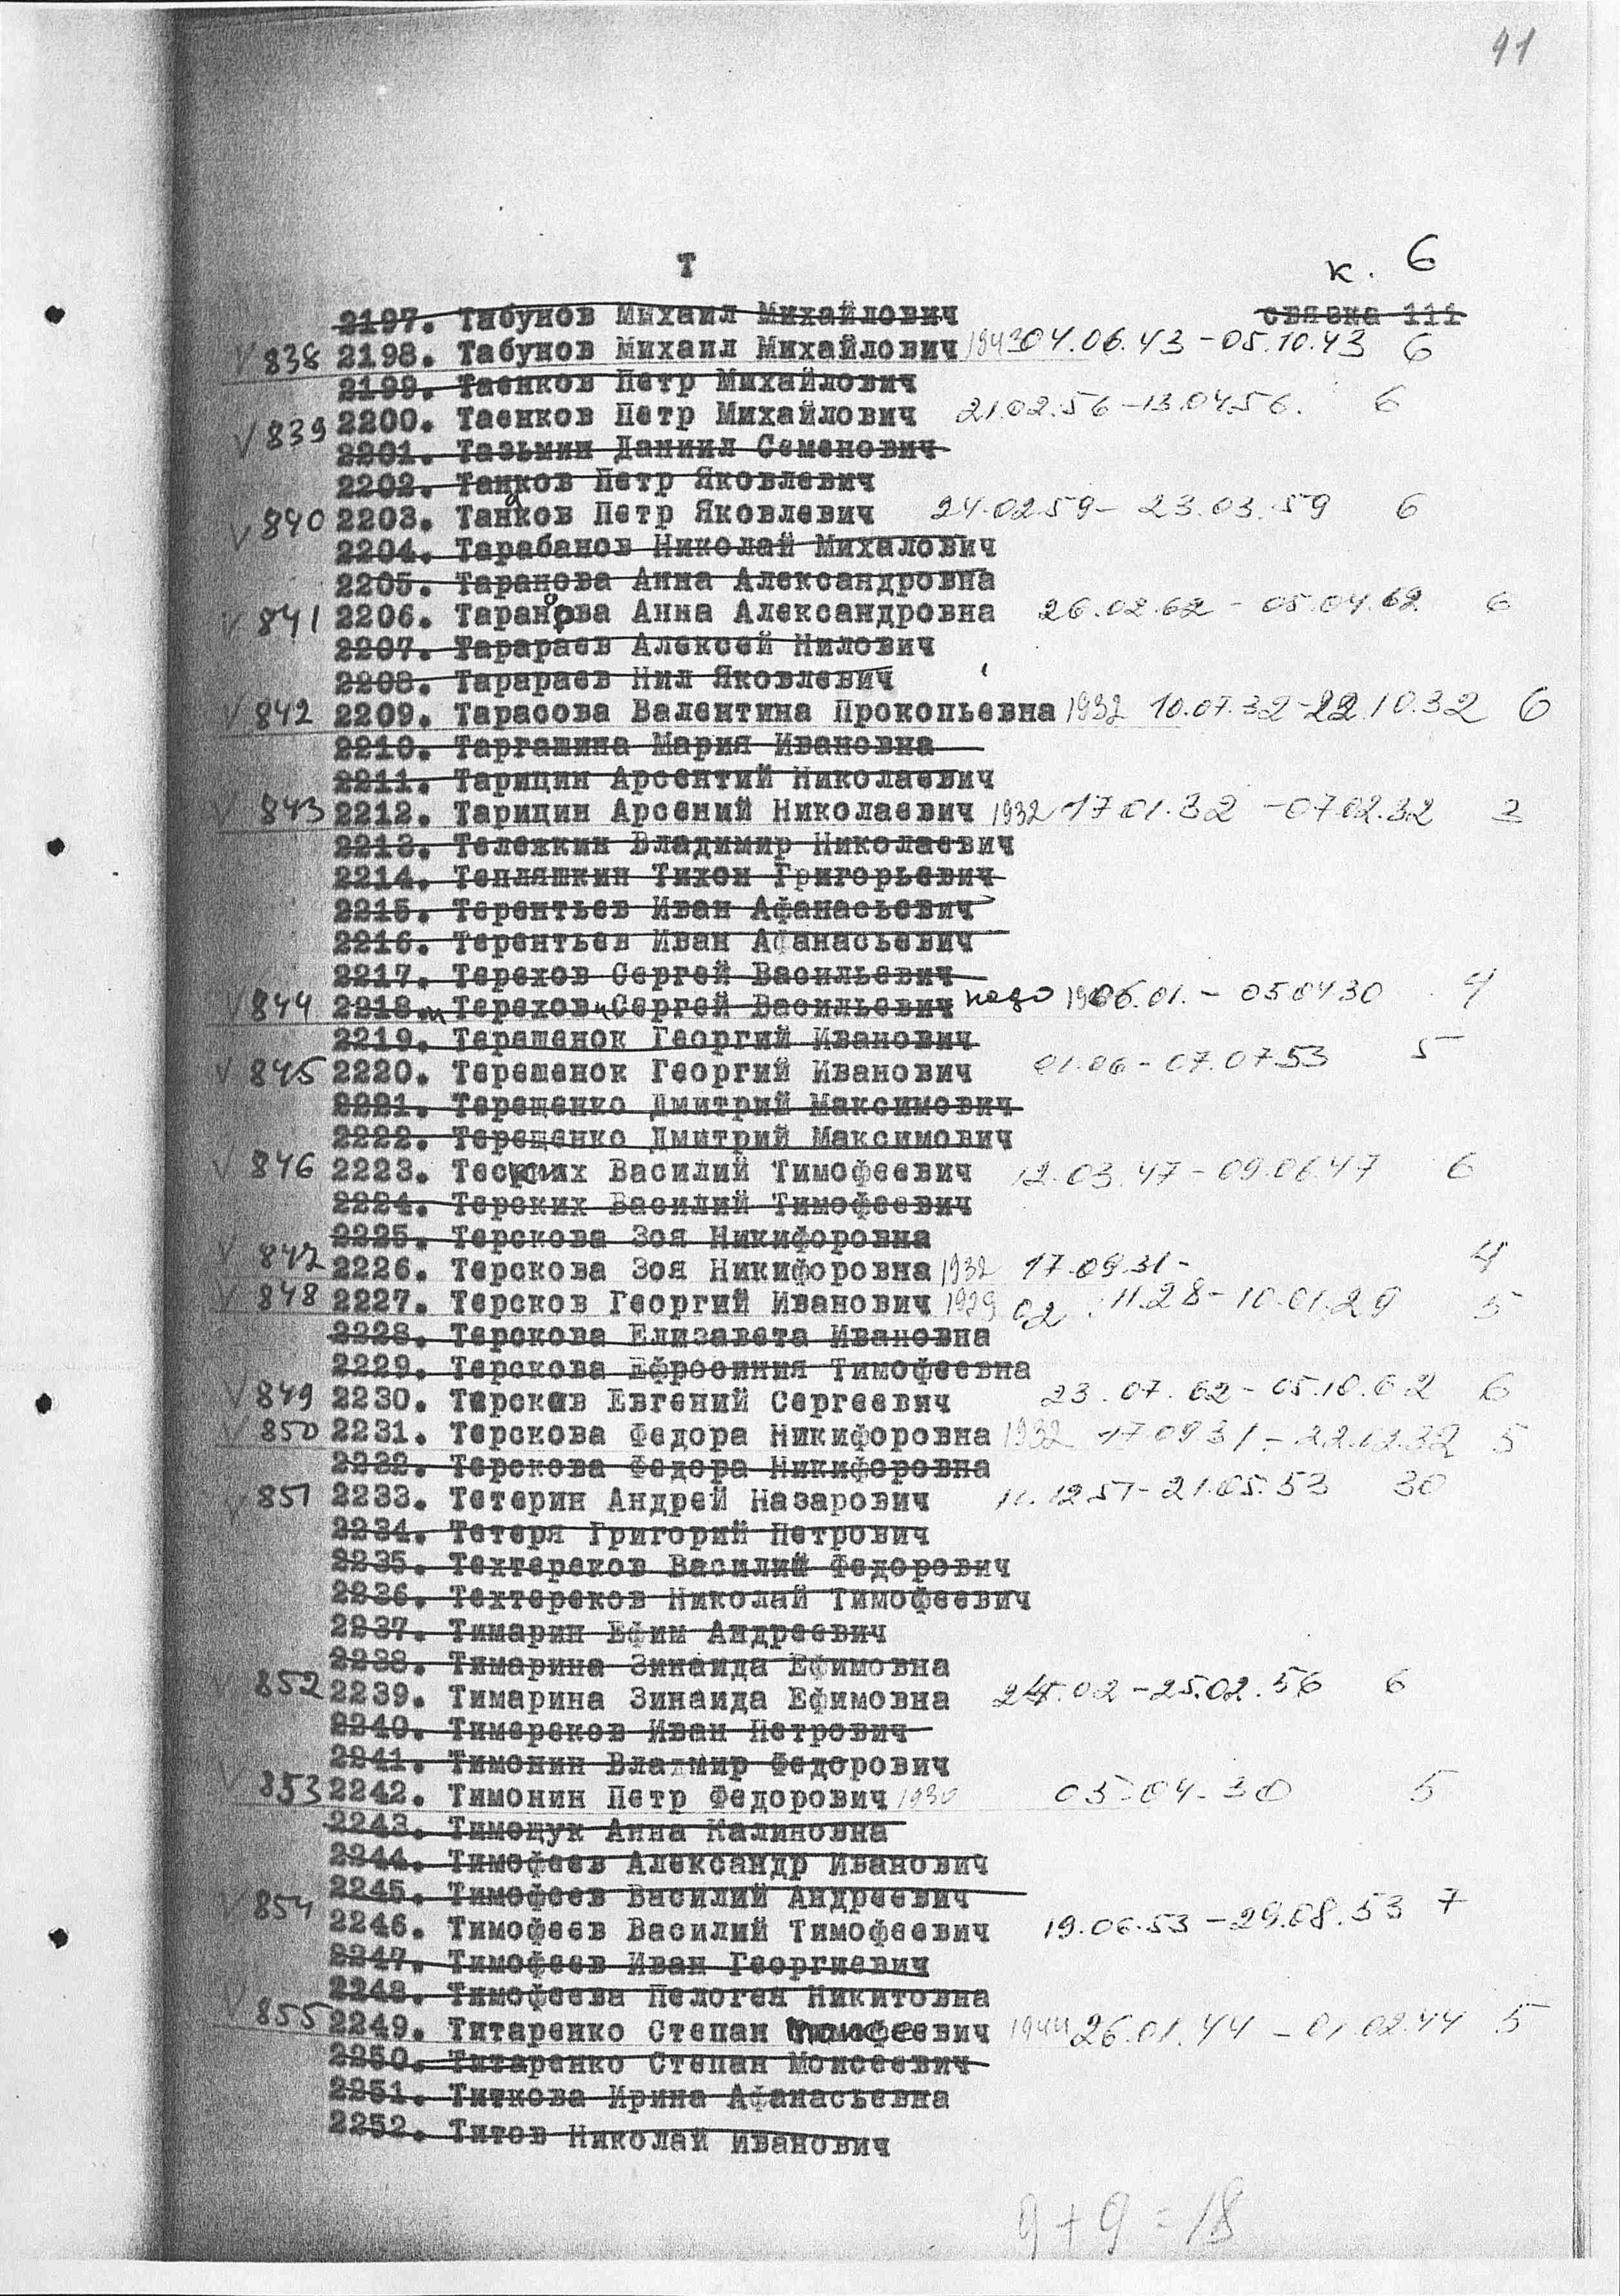 91
Т
к. 6
2197. Табунов Михаил Михайлович связка 111
V 838 2198. Табунов Михаил Михайлович 1943 04.06.43 - 05.10.43 6
2199. Таенков Петр Михайлович
V 839 2200. Таенков Петр Михайлович 21.02.56 - 13.04.56. 6
2201. Тазьмин Даниил Семенович
2202. Танков Петр Яковлевич
V 840 2203. Танков Петр Яковлевич 24.02.59 - 23.03.59 6
2204. Тарабанов Николай Михалович
2205. Таранова Анна Александровна
V 841 2206. Таранова Анна Александровна 26.02.62 - 05.04.62 6
2207. Тарараев Алексей Нилович
2208. Тарараев Нил Яковлевич
V 842 2209. Тарасова Валентина Прокопьевна 1932 10.07.32 - 22.10.32 6
2210. Таргашина Мария Ивановна
2211. Тарицин Арсентий Николаевич
V 843 2212. Тарицин Арсений Николаевич 1932 17.01.32 - 07.02.32 3
2213. Тележкин Владимир Николаевич
2214. Тепляшкин Тихон Григорьевич
2215. Терентьев Иван Афанасьевич
2216. Терентьев Иван Афанасьевич
2217. Терехов Сергей Васильевич
V 844 2218. Терехов Сергей Васильевич надо 06.01. - 05.04.30 4
2219. Терешенок Георгий Иванович
V 845 2220. Терешенок Георгий Иванович 01.06 - 07.07.53 5
2221. Терещенко Дмитрий Максимович
2222. Терещенко Дмитрий Максимович
V 846 2223. Теских Василий Тимофеевич 12.03.47 - 09.06.47 6
2224. Терских Василий Тимофеевич
2225. Терскова Зоя Никифоровна
V 847 2226. Терскова Зоя Никифоровна 1932 17.09.31 - 4
V 848 2227. Терсков Георгий Иванович 1929 02.11.28 - 10.01.29 5
2228. Терскова Елизавета Ивановна
2229. Терскова Ефросиния Тимофеевна
V 849 2230. Терсков Евгений Сергеевич 23.07.62 - 05.10.62 6
V 850 2231. Терскова Федора Никифоровна 1932 17.09.31 - 22.12.32 5
2232. Терскова Федора Никифоровна
V 851 2233. Тетерин Андрей Назарович 11.12.51 - 21.05.53 30
2234. Тетеря Григорий Петрович
2235. Техтереков Василий Федорович
2236. Техтереков Николай Тимофеевич
2237. Тимарин Ефим Андреевич
2238. Тимарина Зинаида Ефимовна
V 852 2239. Тимарина Зинаида Ефимовна 24.02 - 25.02.56 6
2240. Тимереков Иван Петрович
2241. Тимонин Владмир Федорович
V 853 2242. Тимонин Петр Федорович 1930 03-04-30 5
2243. Тимощук Анна Калиновна
2244. Тимофеев Александр Иванович
2245. Тимофеев Василий Андреевич
V 854 2246. Тимофеев Василий Тимофеевич 19.06.53 - 29.08.53 7
2247. Тимофеев Иван Георгиевич
2248. Тимофеева Пелоген Никитовна
V 855 2249. Титаренко Степан Моисеевич 1944 26.01.44 - 01.02.44 5
2250. Титаренко Степан Моисеевич
2251. Титкова Ирина Афанасьевна
2252. Титов Николай Иванович
9 + 9 = 18